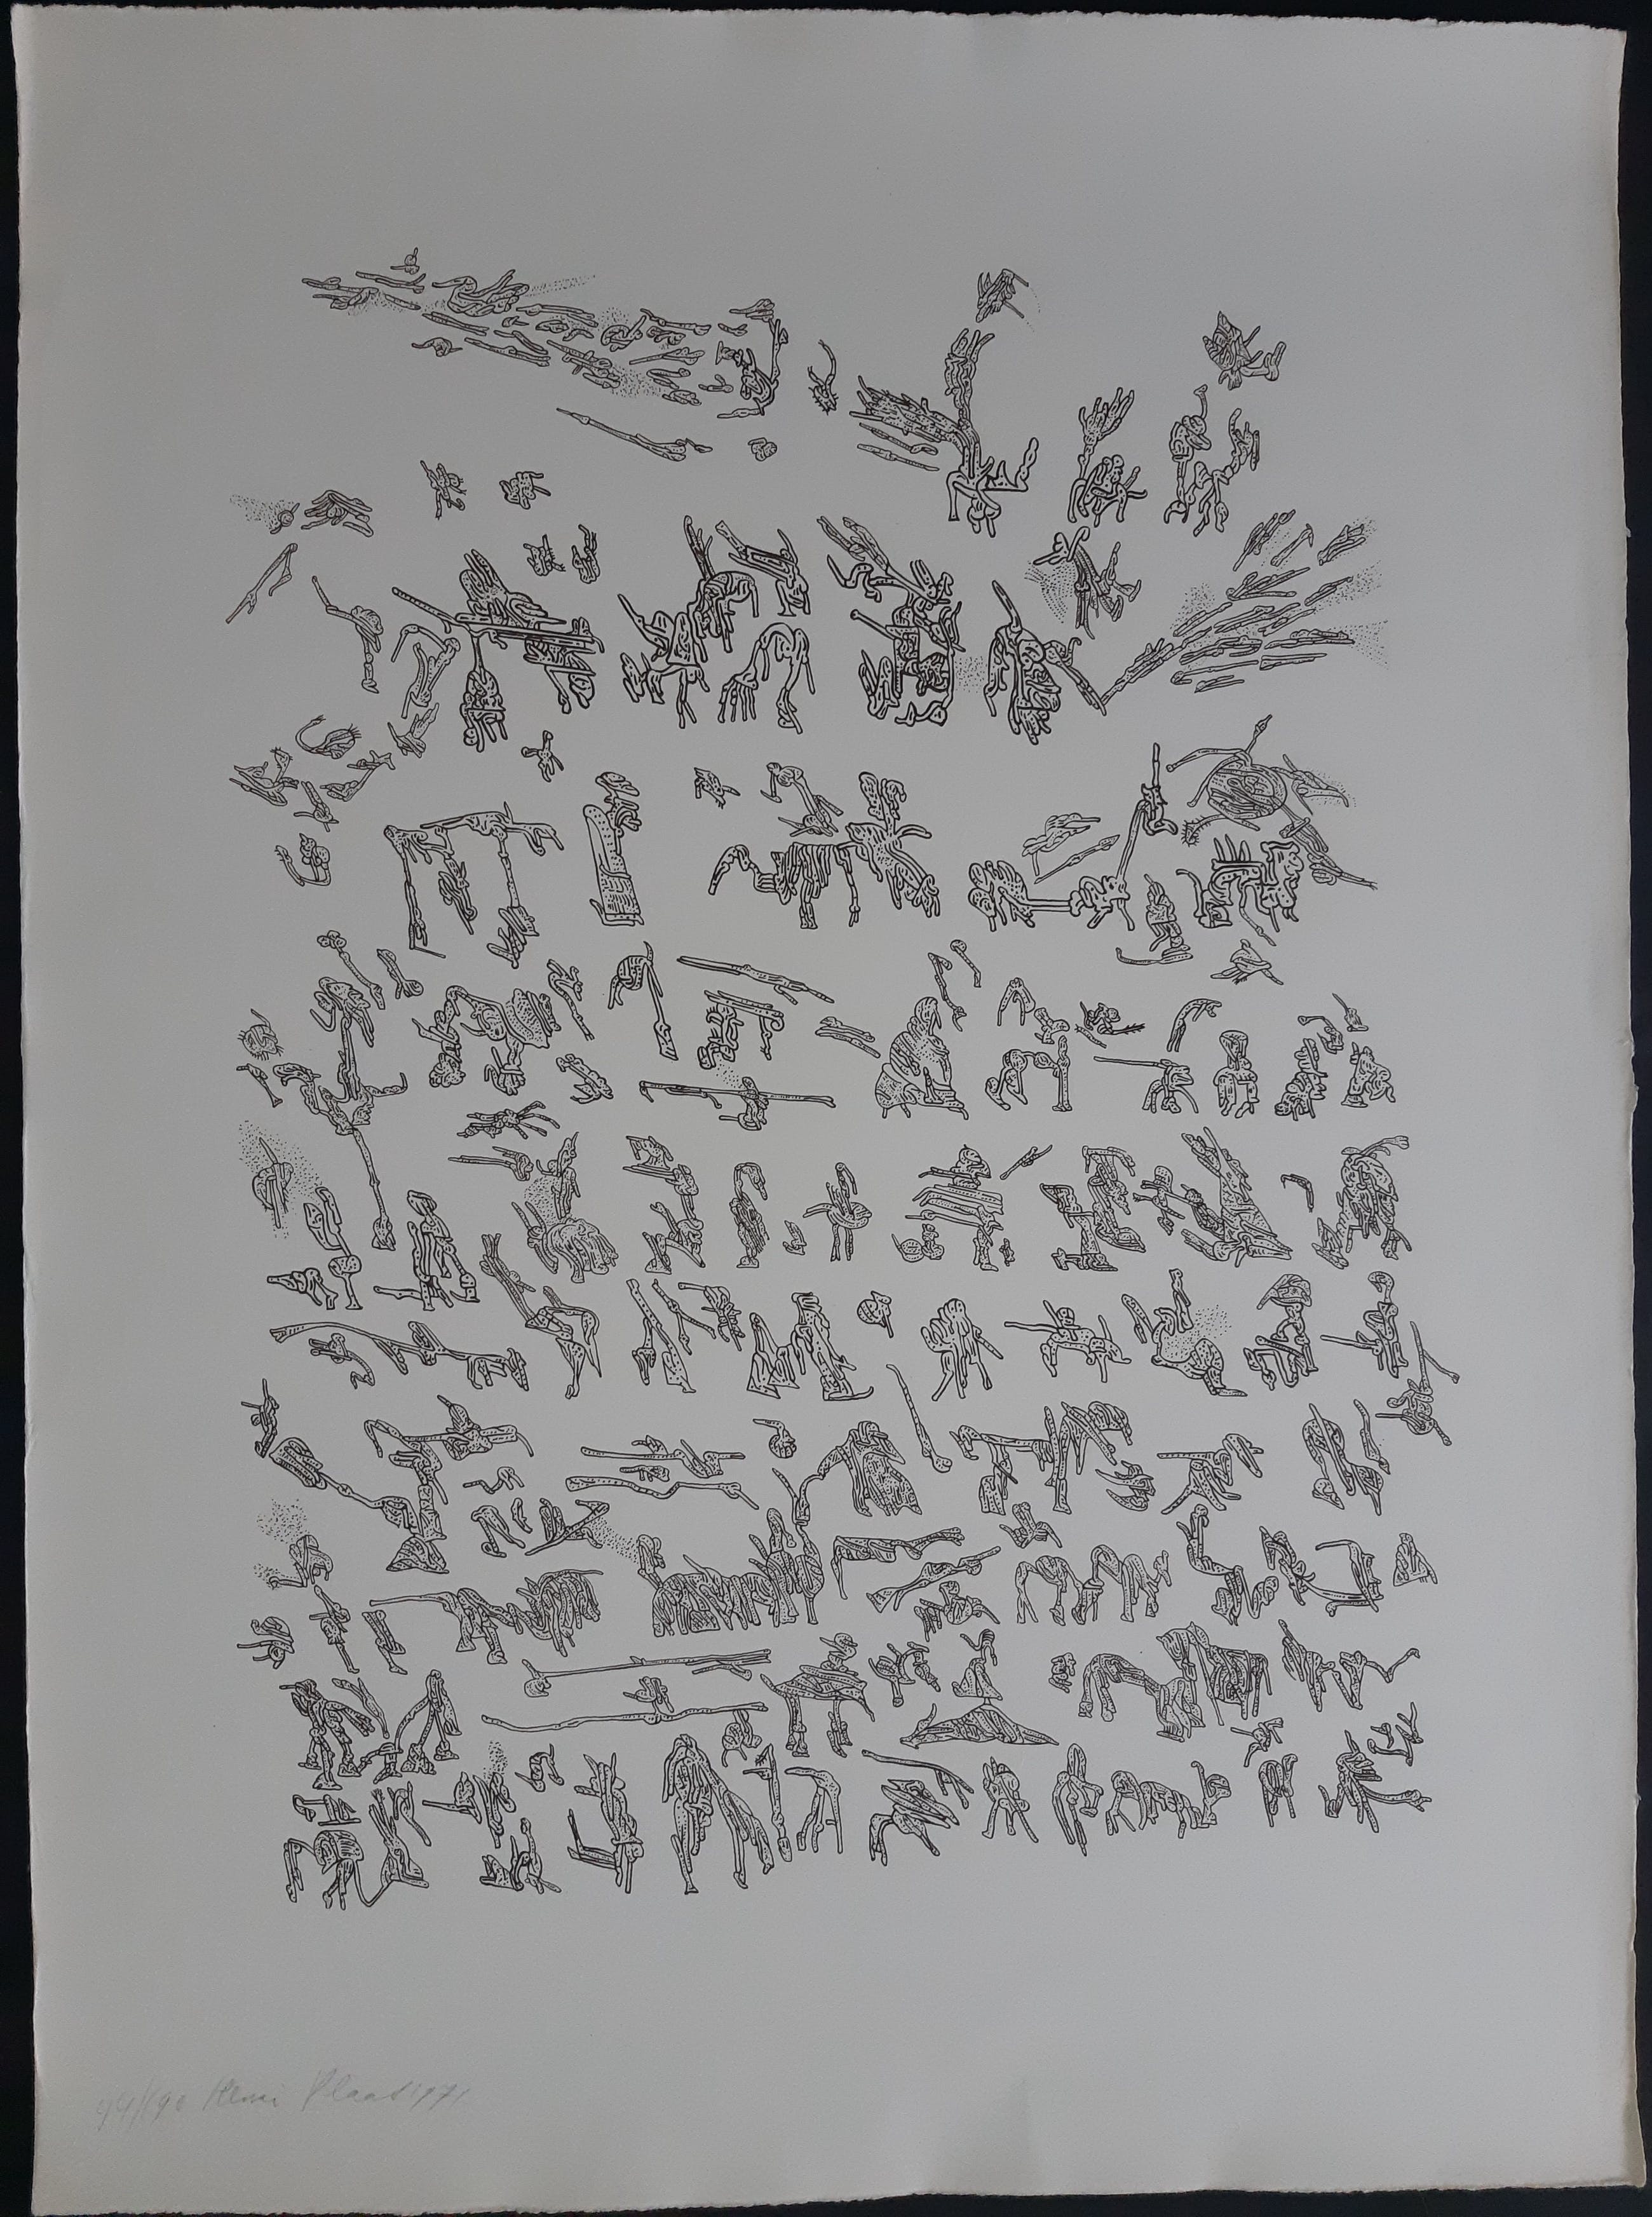 44/190 Henri Plaat 1971